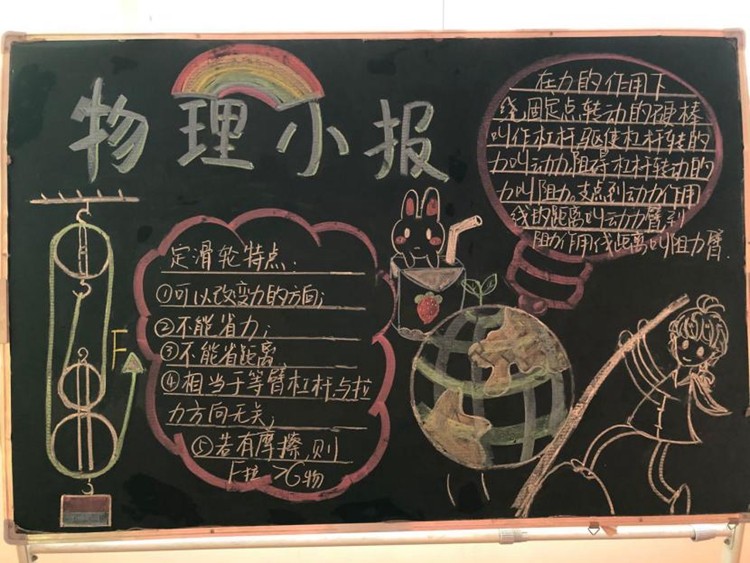 物理小报
在力的作用下
绕固定点转动的硬棒
叫作杠杆,驱使杠杆转的
力叫动力,阻碍杠杆转动的
力叫阻力。支点到动力作用
线的距离叫动力臂,到
阻力作用线距离叫阻力臂.
定滑轮特点:
①可以改变力的方向;
②不能省力;
③不能省距离
④相当于等臂杠杆,与拉
力方向无关;
⑤若有摩擦,则
F拉>G物
F